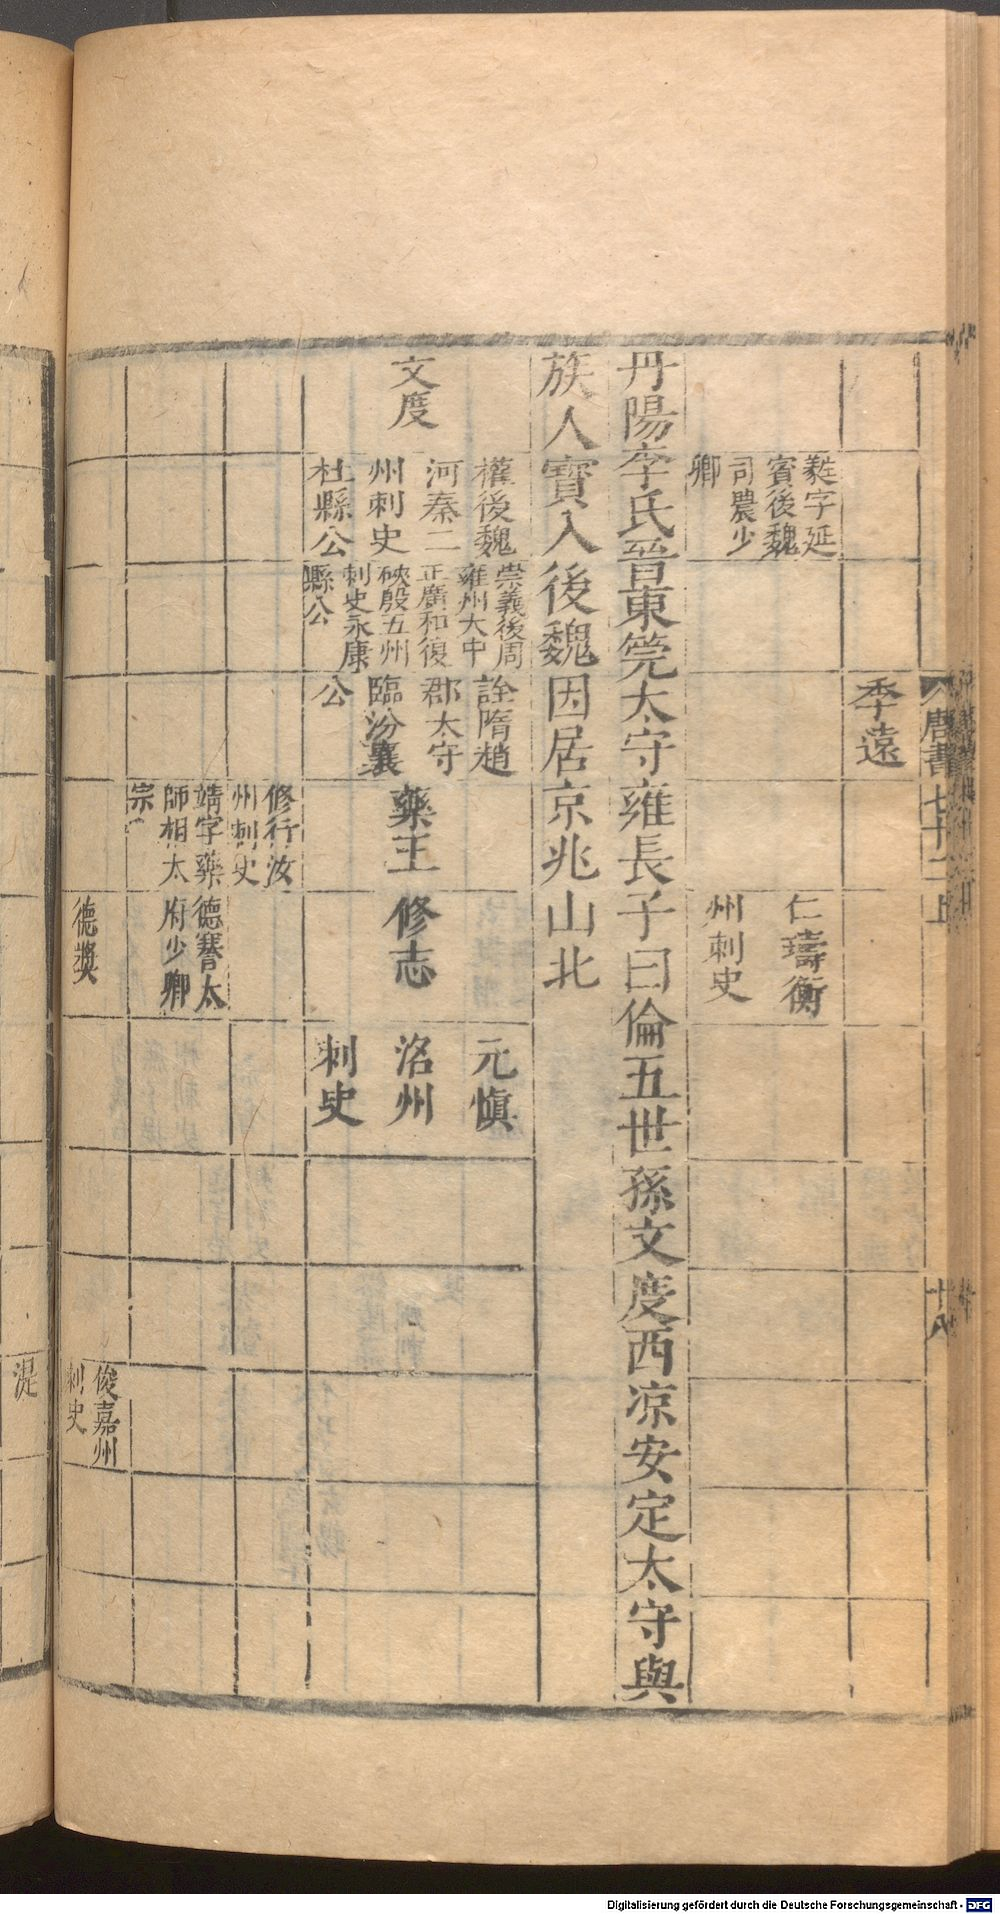 唐書七十二上
十八
季遠
蕤字延
賓後魏
司農少
卿
仁璹衡
州刺史
丹陽李氏晉東筦太守雍長子曰倫五世孫文度西凉安定太守與
族人寶入後魏因居京兆山北
文度
權後魏
河秦二
州刺史
杜縣公
崇義後周
雍州大中
正廣和復
硤殷五州
刺史永康
縣公
詮隋趙
郡太守
臨汾襄
公
藥王
修志
元愼
洺州
刺史
修行汝
州刺史
靖字藥
師相太
宗
德謇太
府少卿
德奬
俊嘉州
刺史
湜
Digitalisierung gefördert durch die Deutsche Forschungsgemeinschaft - DFG